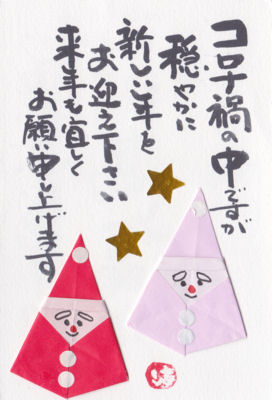 コロナ禍の中ですが
穏やかに
新しい年を
お迎え下さい
来年も宜しく
お願い申し上げます